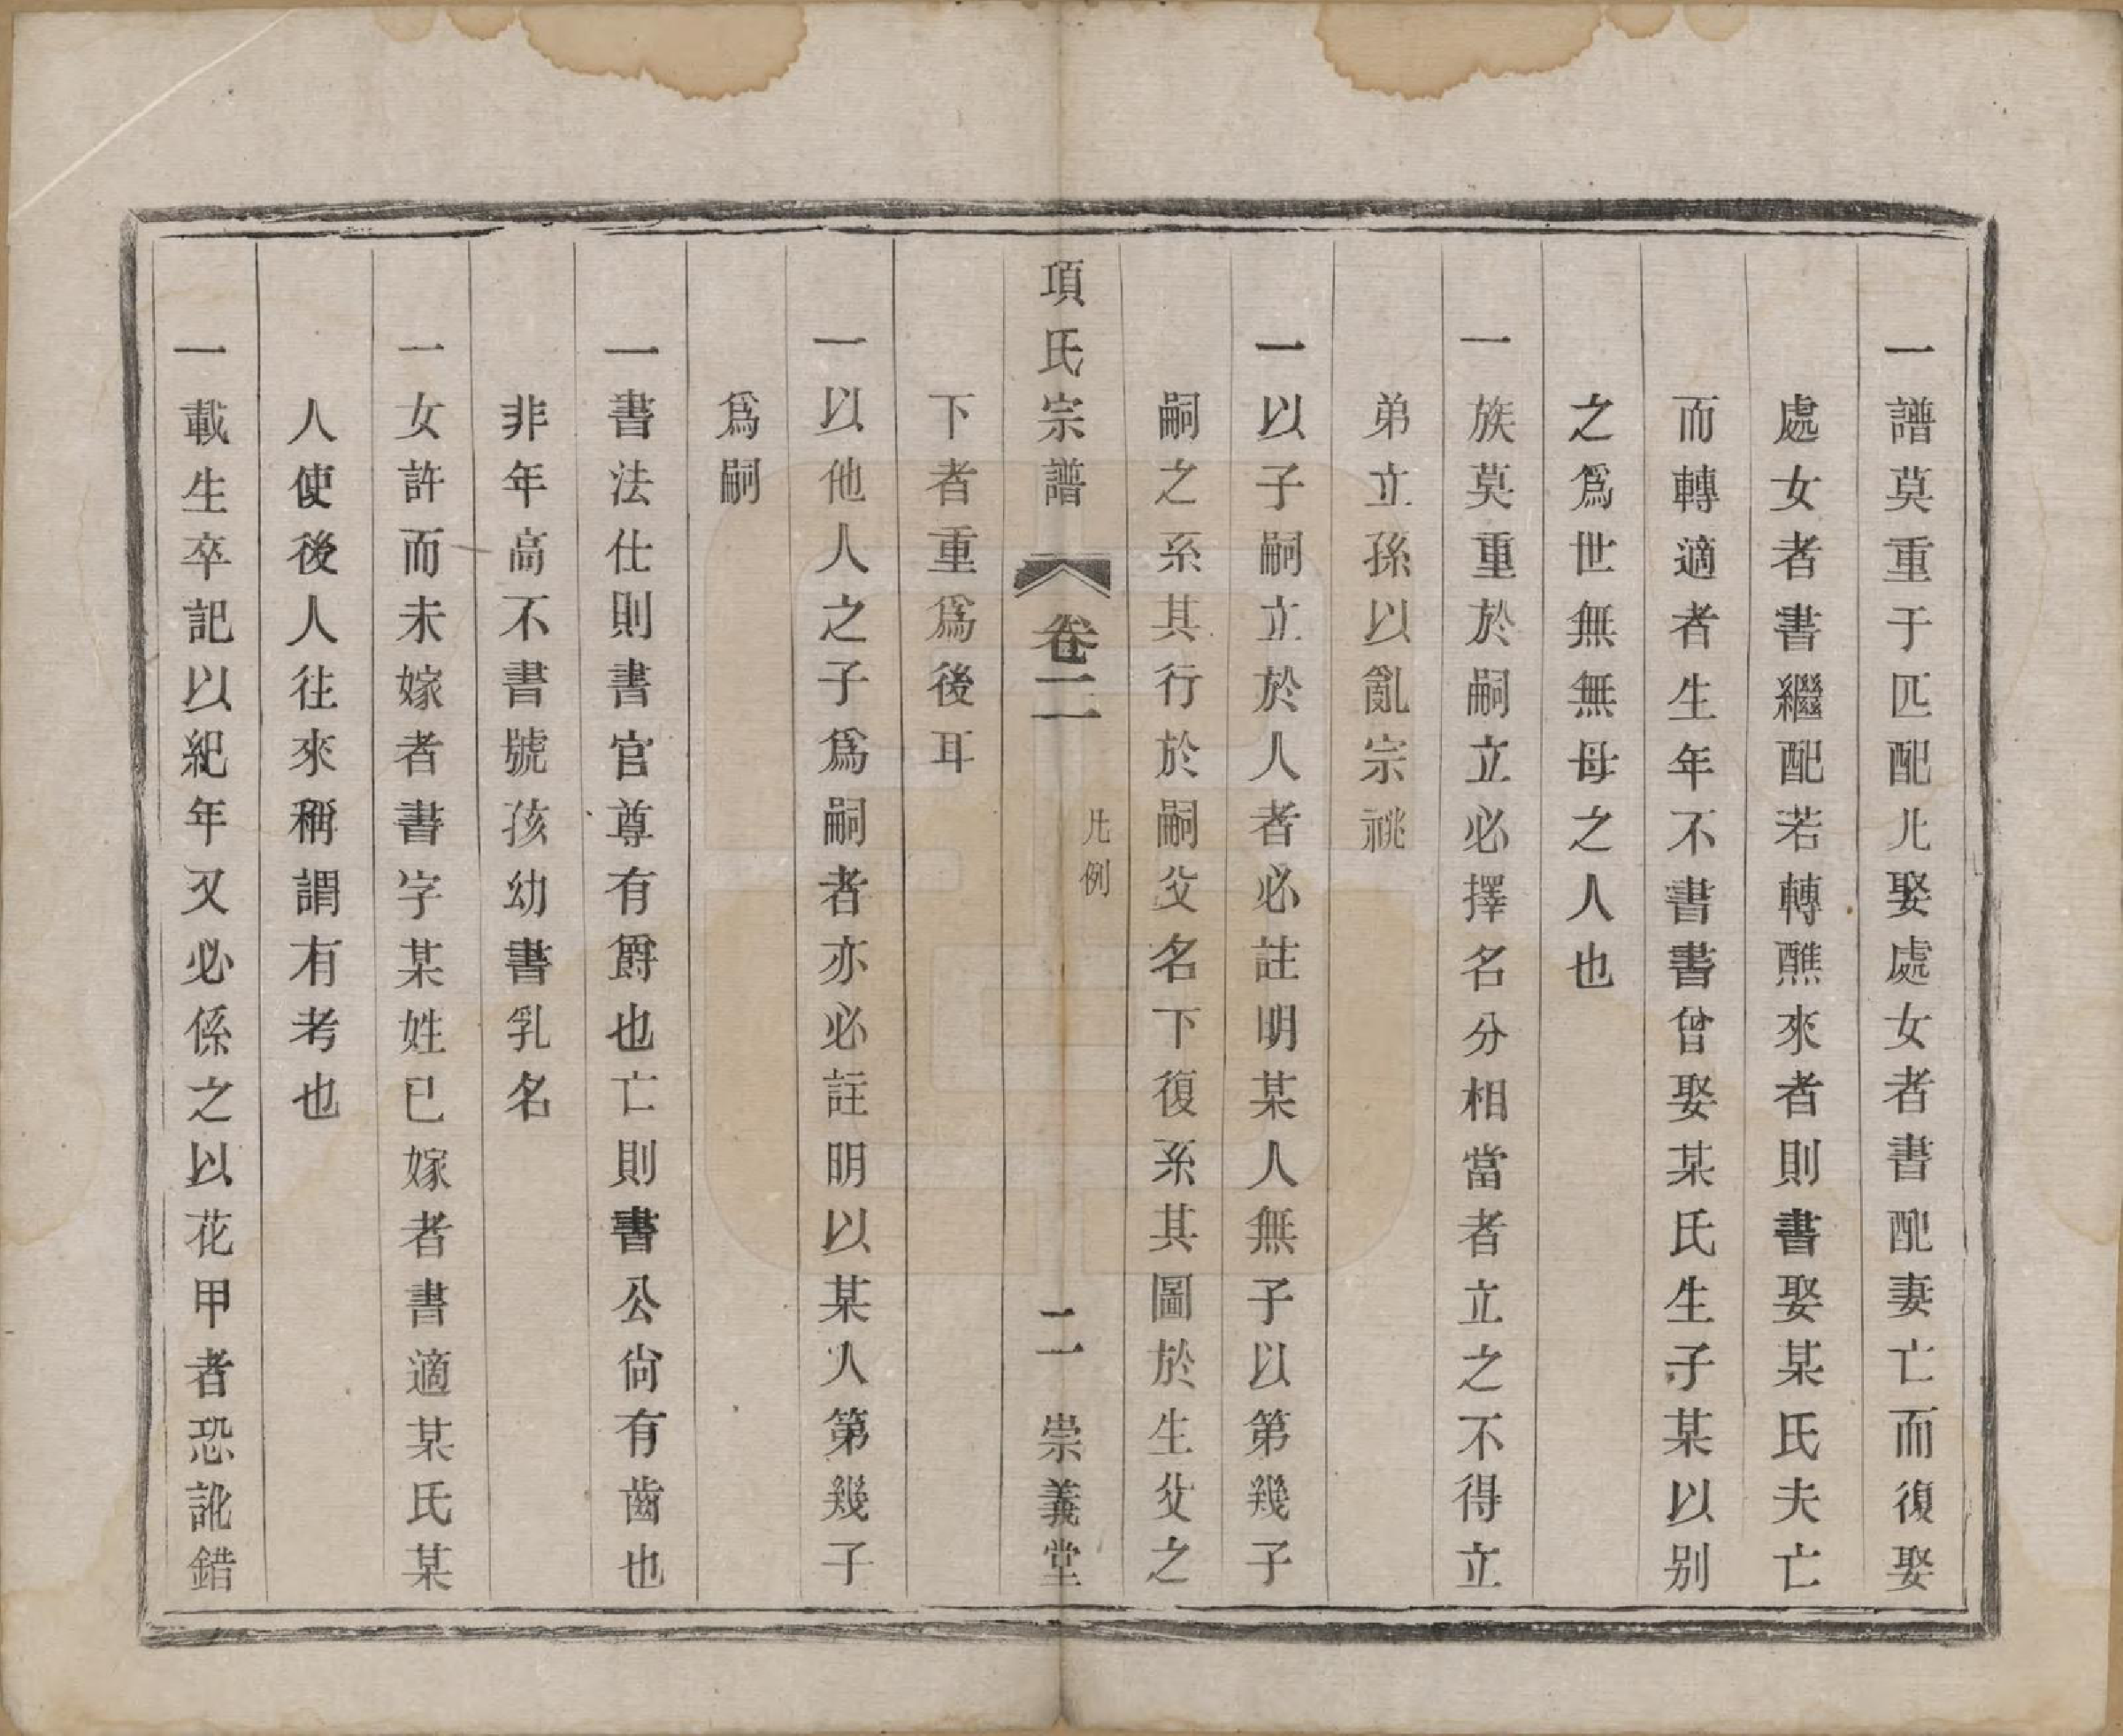 一譜莫重于匹配凡娶處女者書配妻亡而復娶
處女者書繼配若轉醮來者則書娶某氏夫亡
而轉適者生年不書書曾娶某氏生子某以别
之爲世無無母之人也
一族莫重於嗣立必擇名分相當者立之不得立
弟立孫以亂宗祧
一以子嗣立於人者必註明某人無子以第幾子
嗣之系其行於嗣父名下復系其圖於生父之
項氏宗譜 卷二 凡例 二 崇義堂
下者重爲後耳
一以他人之子爲嗣者亦必註明以某人第幾子
爲嗣
一書法仕則書官尊有爵也亡則書公尙有齒也
非年高不書號孩幼書乳名
一女許而未嫁者書字某姓已嫁者書適某氏某
人使後人往來稱謂有考也
一載生卒記以紀年又必係之以花甲者恐訛錯